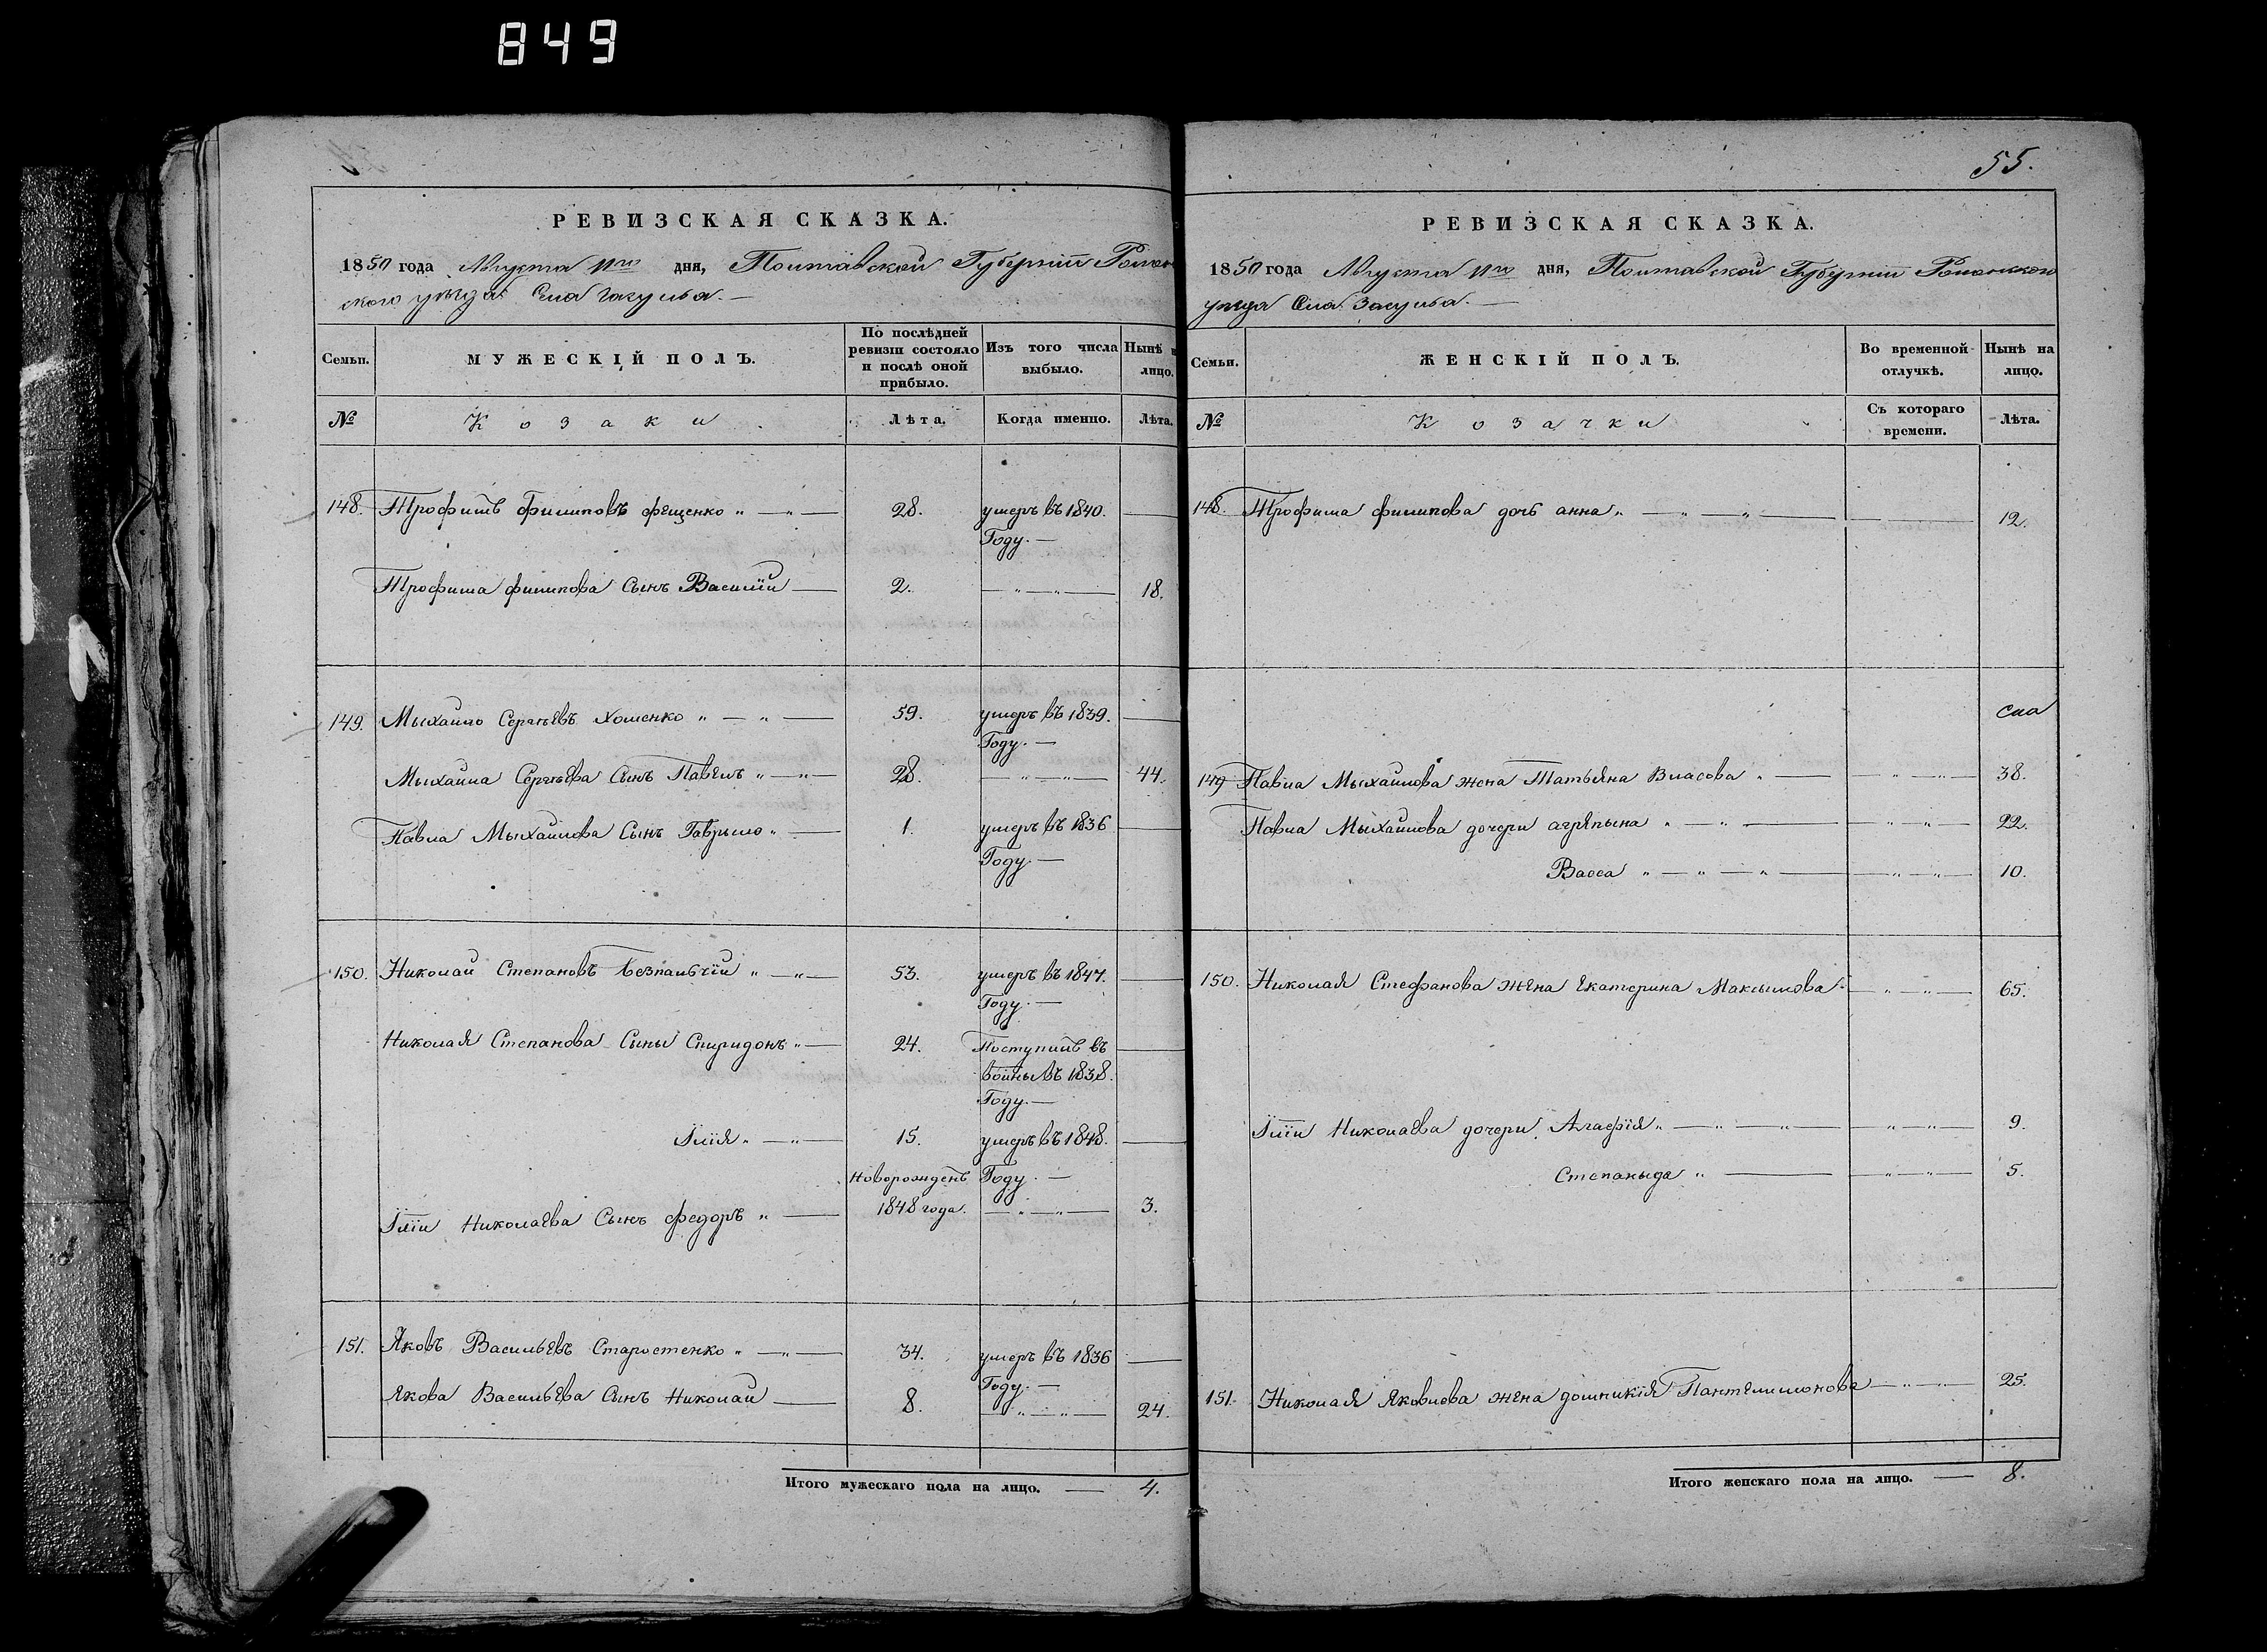 849
РЕВИЗСКАЯ СКАЗКА.
1850 года Августа 11го дня, Полтавской Губерніи Ромен
ского уезда Села Засулья. —
Семьи.
МУЖЕСКІЙ ПОЛЪ.
По послѣдней ревизіи состояло и послѣ оной прибыло.
Изъ того числа выбыло.
Нынѣ на лицо.
№
Козаки
Лѣта.
Когда именно.
Лѣта.
148. Трофимъ Филиповъ Фещенко 28. умеръ въ 1840.
Году. —
Трофима Филипова Сынъ Василій 2. 18.
149. Мыхайло Сергѣевъ Хоменко 59. умеръ въ 1839.
Году. —
Мыхайла Сергѣева Сынъ Павелъ 28. 44.
Павла Мыхайлова Сынъ Гаврыло 1. умеръ въ 1836
Году. —
150. Николай Степановъ Безпалъчій 53. умеръ въ 1847.
Году. —
Николая Степанова Сыны Спиридонъ 24. Поступилъ въ
войны въ 1838.
Году. —
Ілія 15. умеръ въ 1848.
Новорожденъ Году. —
Іліи Николаева Сынъ Федоръ 1848 года. 3.
151. Яковъ Васильевъ Старостенко 34. умеръ въ 1836
Году. —
Якова Васильева Сынъ Николай 8. 24.
Итого мужескаго пола на лицо. — 4.
55.
РЕВИЗСКАЯ СКАЗКА.
1850 года Августа 11го дня, Полтавской Губерніи Роменского
уезда Села Засулья. —
Семьи.
ЖЕНСКІЙ ПОЛЪ.
Во временной отлучкѣ.
Нынѣ на лицо.
№
Козачки
Съ котораго времени.
Лѣта.
148. Трофима Филипова дочь анна 12.
149 Павла Мыхайлова жена Татьяна Власова 38.
Павла Мыхайлова дочери агрѣпына 22.
Васса 10.
150. Николая Стефанова жена Екатерина Максымова 65.
Іліи Николаева дочери Агафія 9.
Степаныда 5.
151. Николая Яковлева жена домникія Пантелимонова 25.
Итого женскаго пола на лицо. — 8.